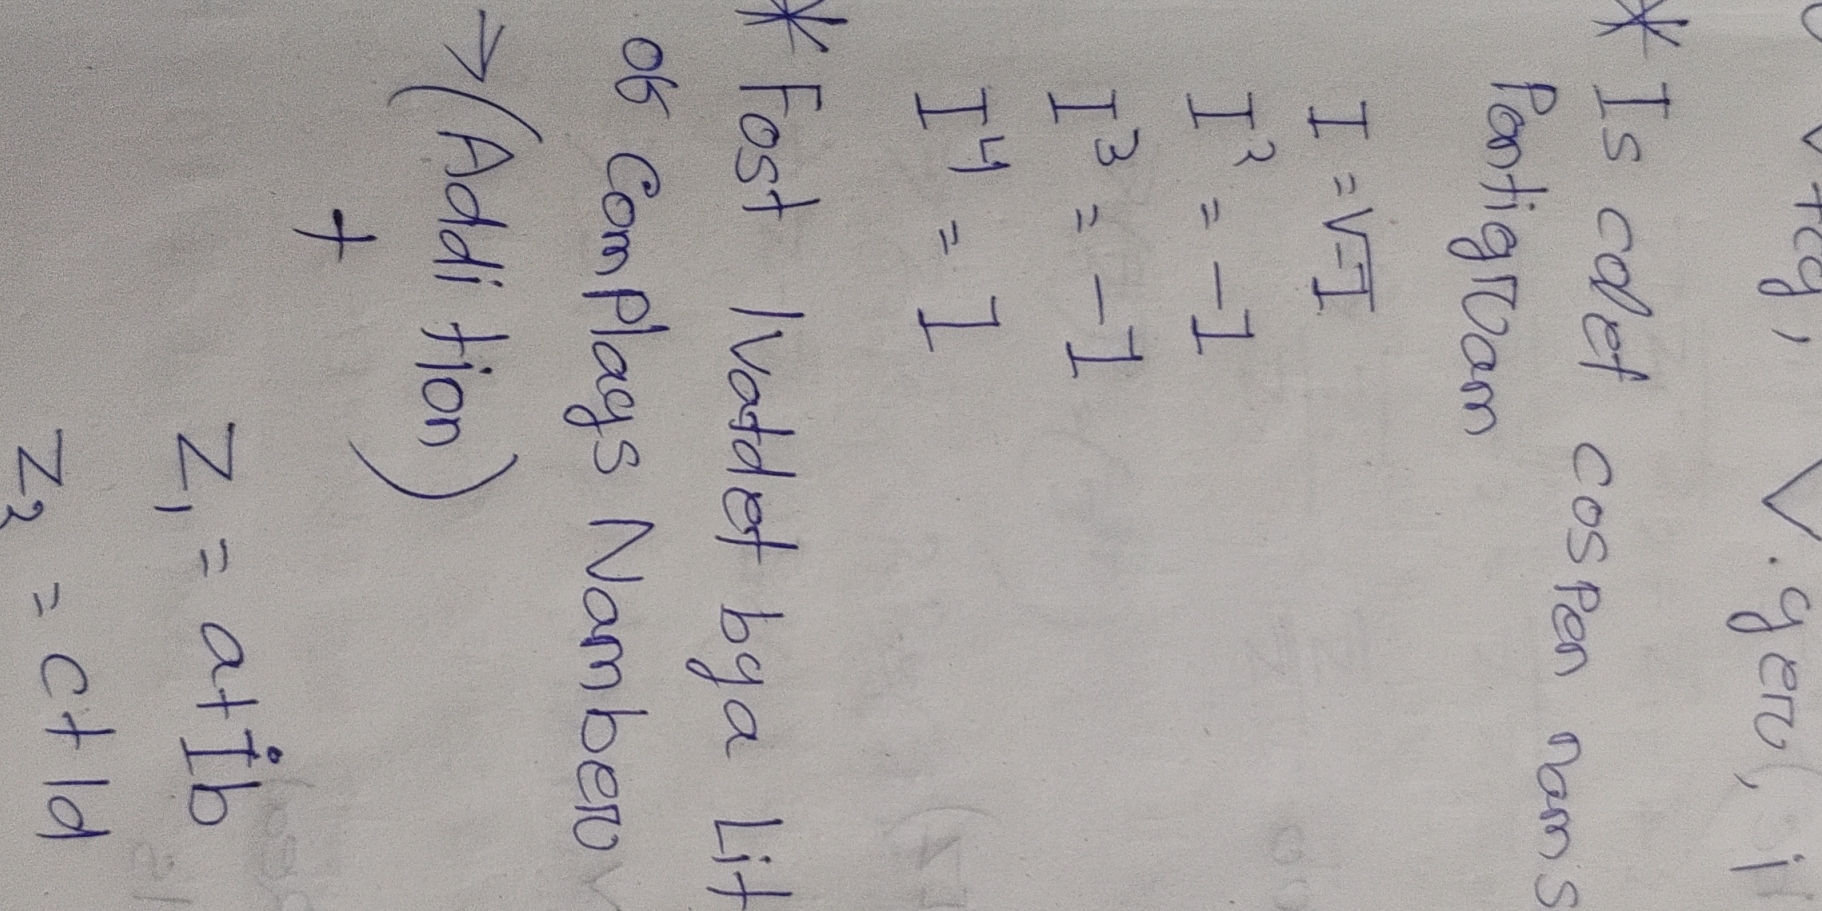 * Is calet cospen nams
Pantigram
I = √-I
I² = -1
I³ = -I
I⁴ = 1
* Fost Natdet bga Lit
of Complags Namber
→ (Addition)
+
Z₁ = a+ib
Z₂ = c+Id